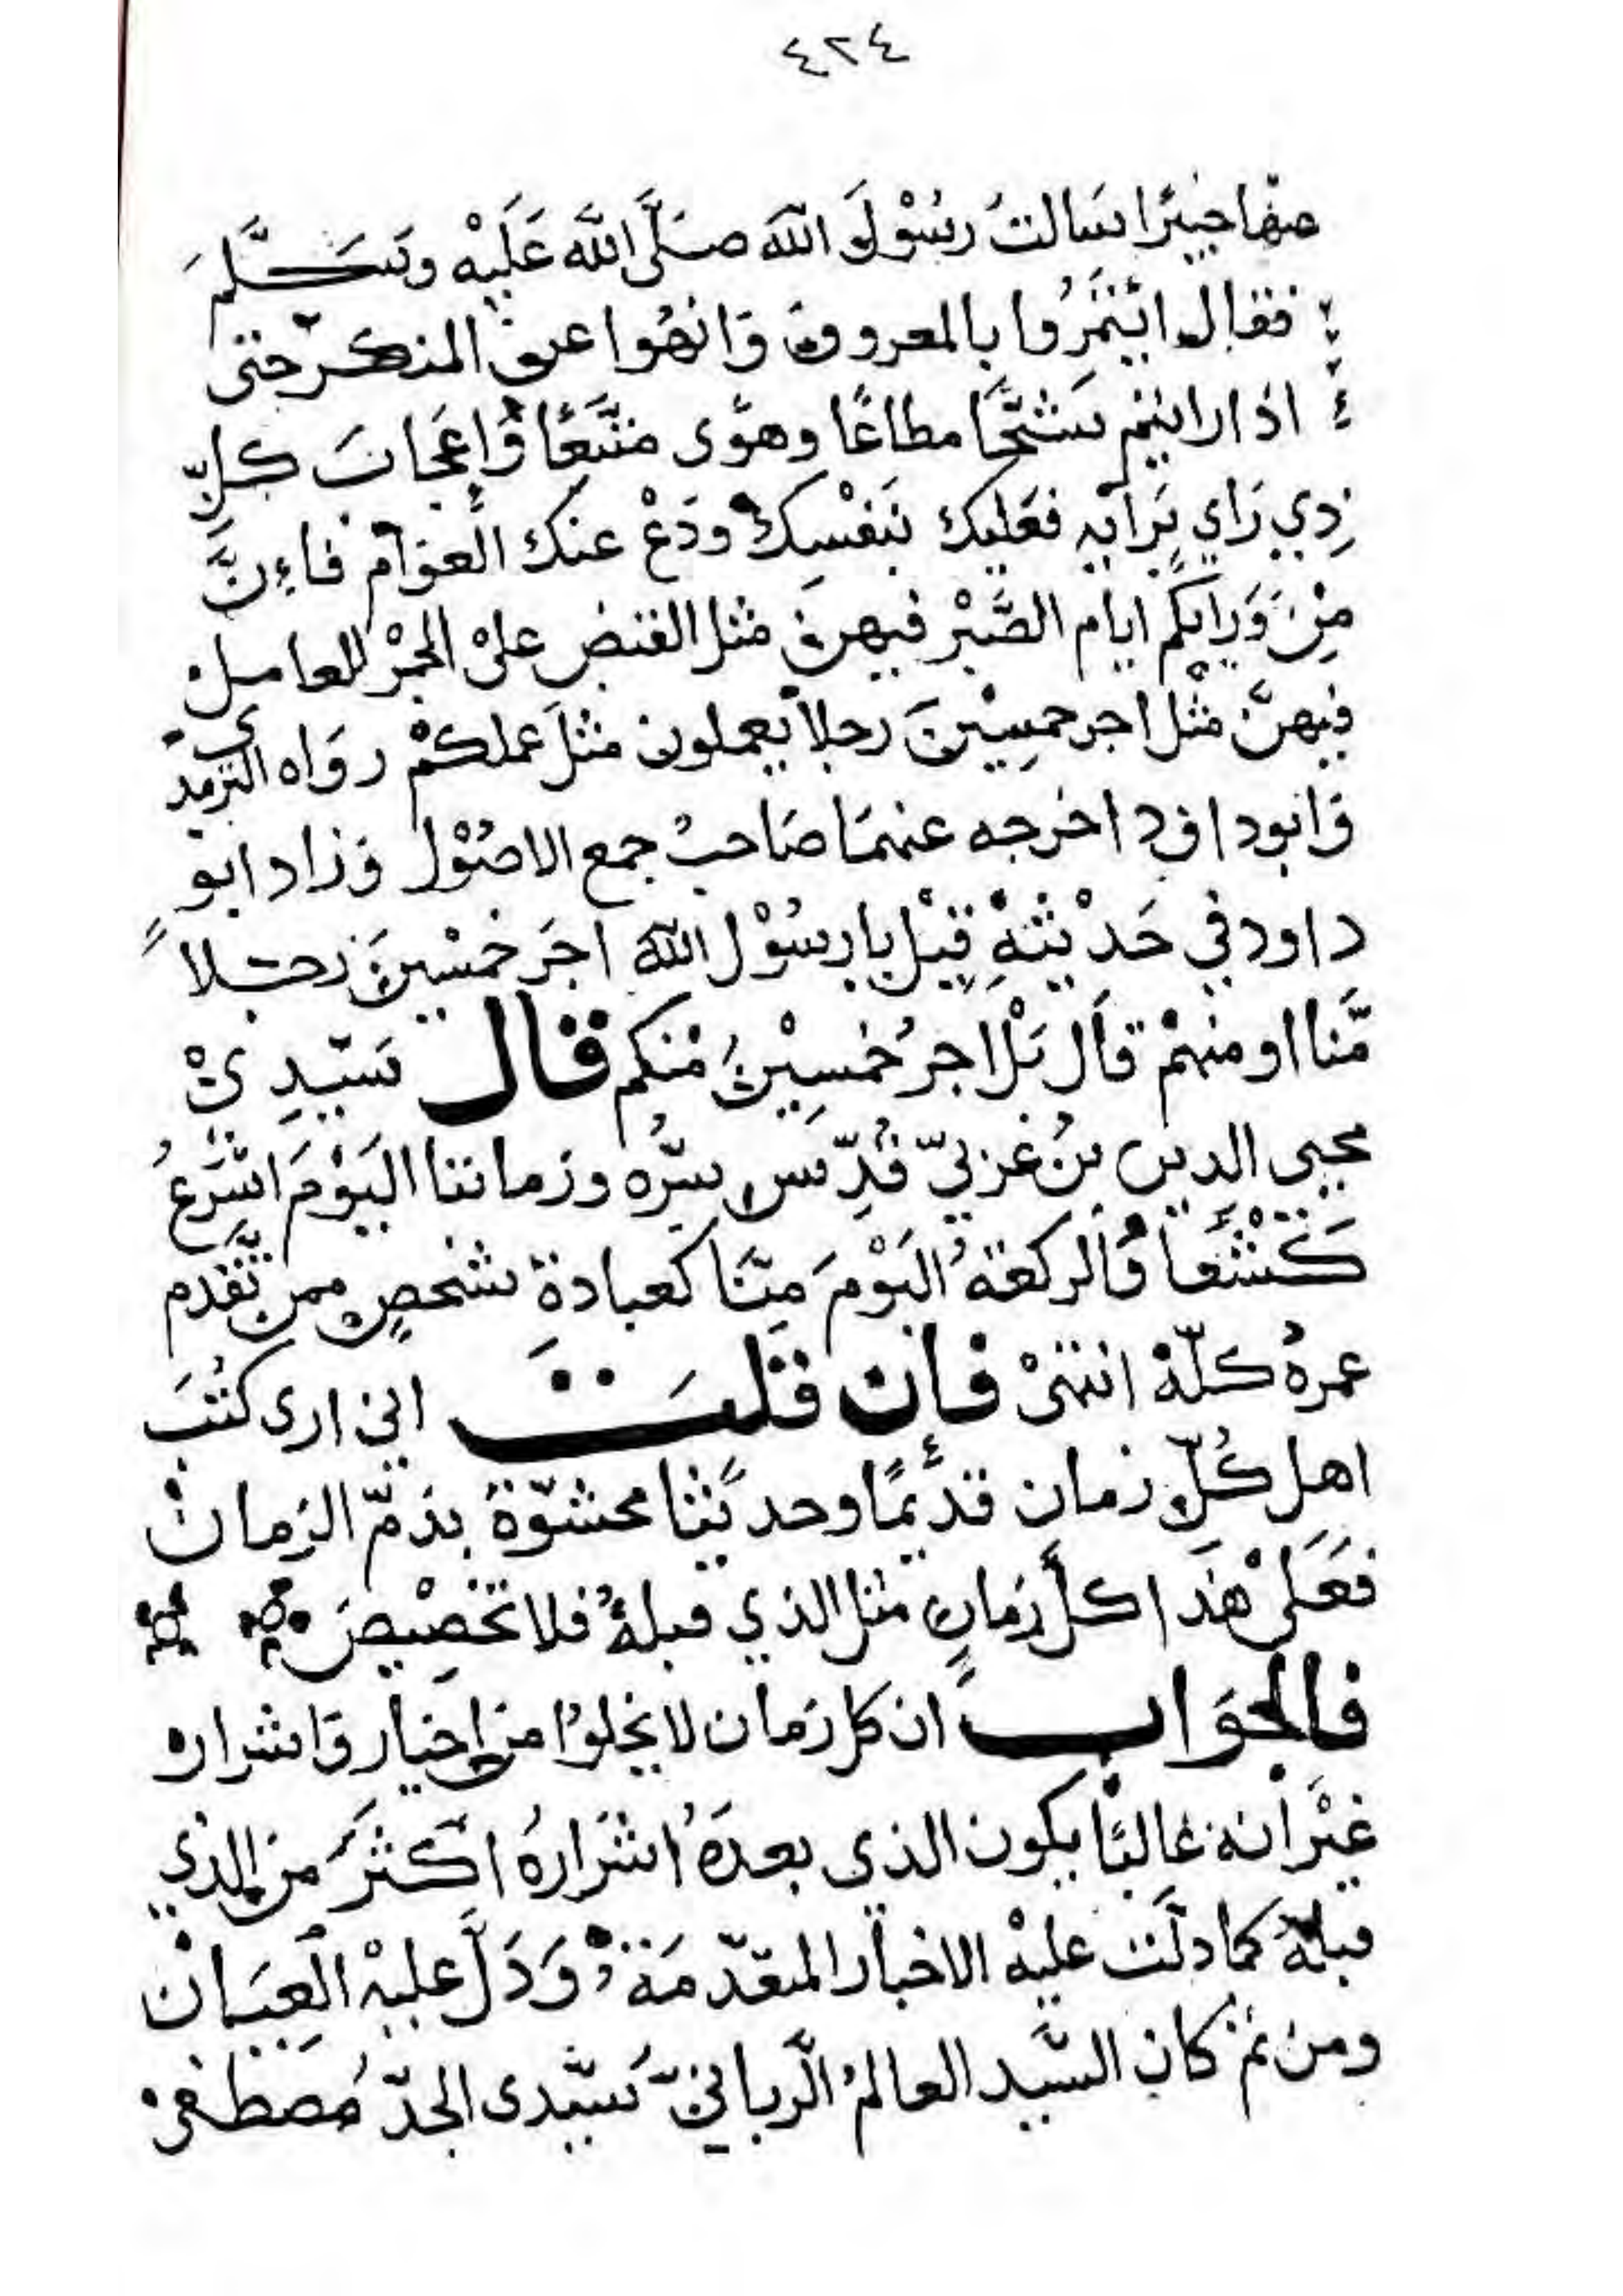 ٤٢٤
عنها خبيرًا سَالتُ رسُوْلَ اللهَ صَلَّى اللَّه عَلَيْه وسَلَّمَ
فقال ائتمِرُوا بالمعروف وَانهُوا عن المنكر حتى
اذا رايتم شحًّا مطاعًا وهوًى متَّبَعًا وَّاِعجَابَ كلِّ
ذِي رَاي بَرايه فعَليك بنَفْسِك ودَعْ عنك العوَام فاءِنَّ
مِنْ وَرايكم ايام الصَّبْر فيهن مثل القبض على الجمْر للعامل
فيهنَّ مثْل اجر خمسِيْنَ رجلاً يعملون مثلَ عملكمْ روَاه الترمذي
وَابوداود اخرجه عنهمَا صَاحبُ جمع الاصُوْل وَزاد ابو
داود في حَديْثهِ قيْل يارسُوْل الله اجَر خمْسينَ رجلاً
مَّنا او منهمْ قاَل بَلْ اجرُ خمسِيْنَ منكم قال سَيّدِيْ
محيى الدين بنُ عربيّ قُدِّس سرُّه وزماننا اليَوْمَ اسْرَعُ
كَشْفًا وَالركعة اليَوْمَ مِنَّا كعبادة شخصٍ ممن تقَدم
عمرهُ كلّهْ انتهىْ فان قلتَ اني ارى كُتبَ
اهل كُلِّ زمان قديمًا وحديثا محشوّة بذمّ الزمان
فعَلىْ هذَا كلُّ زمانٍ مثل الذي قبلهُ فلا تخصِيْصَ
فالجوَاب ان كل زمان لا يخلوا من اخيار وَاشرار
غيْر انه غالبًا يكون الذى بعدَهُ اشرارهُ اكثرَ من الذي
قبلهُ كما دلّت عليْه الاخبار المتقدّمَة وَدَلَّ عليْه العِيَان
ومن ثم كان السَّيد العالمُ الرَّبانيّ سَيّدى الجدّ مُصطفىْ